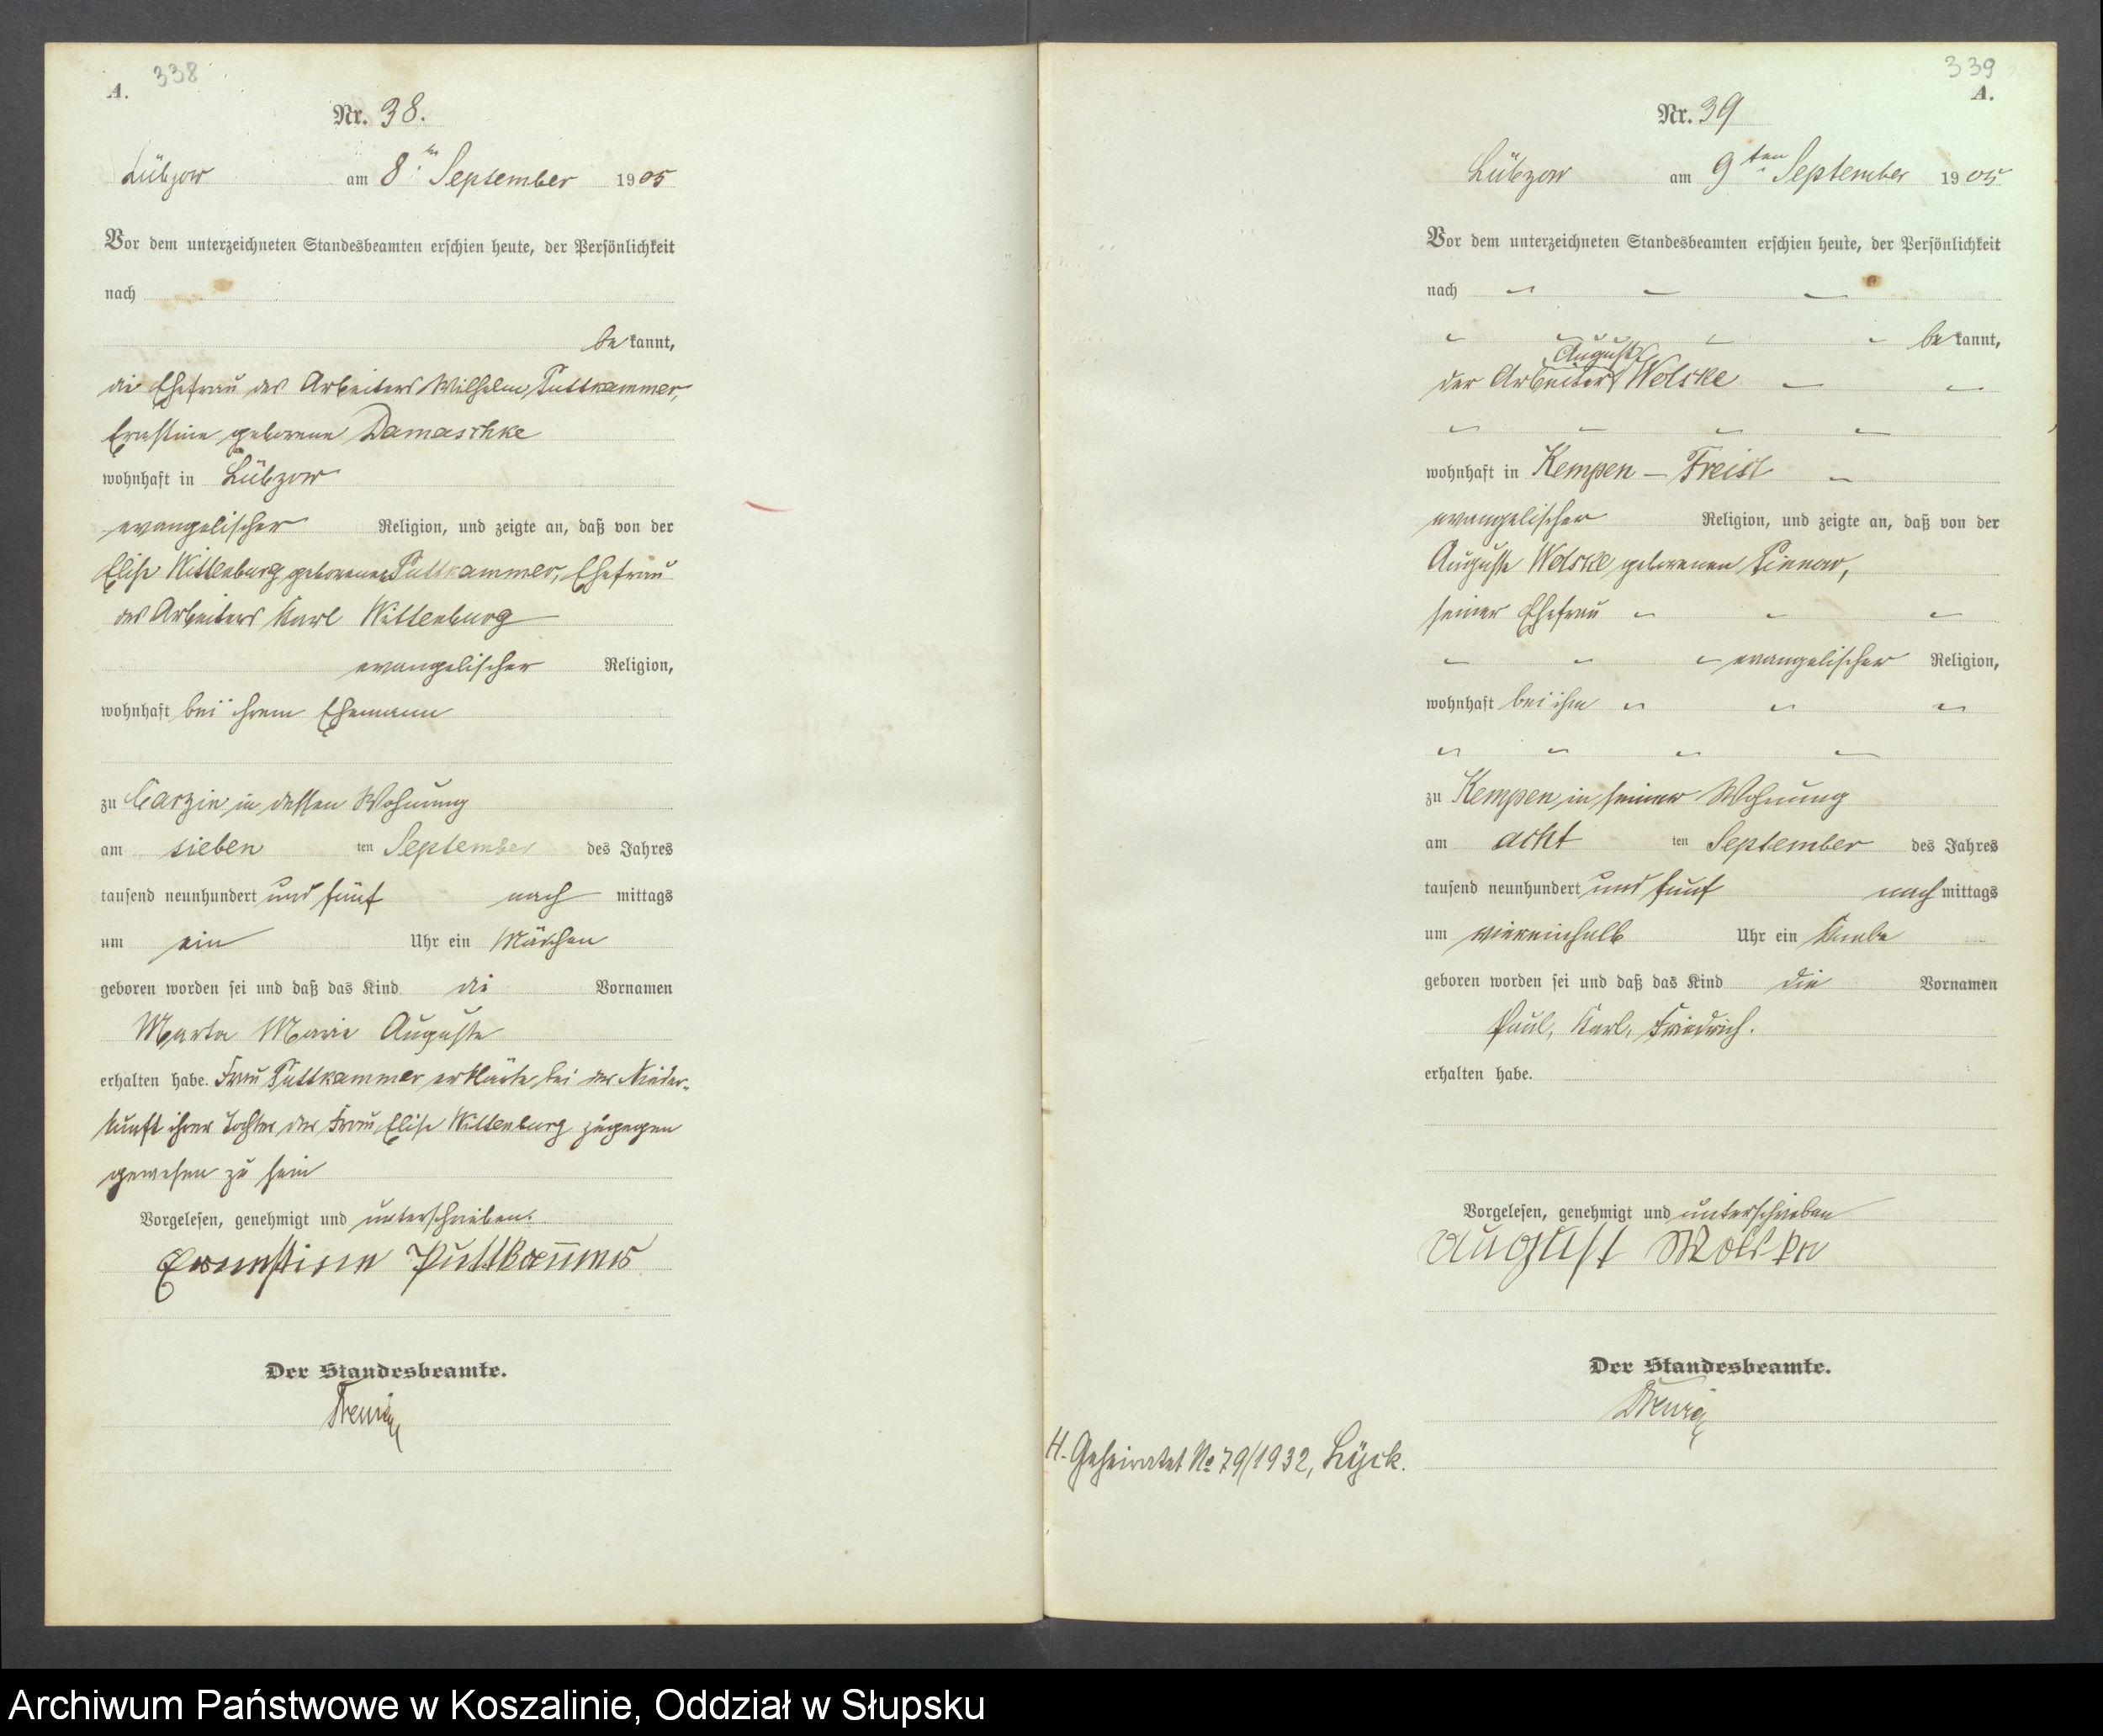 338
A.
Nr. 38.
Lübzow am 8ten September 1905
Vor dem unterzeichneten Standesbeamten erschien heute, der Persönlichkeit
nach
be kannt,
die Ehefrau des Arbeiters Wilhelm Puttkammer,
Ernstine geborene Damaschke
wohnhaft in Lübzow
evangelischer Religion, und zeigte an, daß von der
Elise Wittenburg geborenen Puttkammer, Ehefrau
des Arbeiters Karl Wittenburg
evangelischer Religion,
wohnhaft bei ihrem Ehemann
zu Carzin in dessen Wohnung
am sieben ten September des Jahres
tausend neunhundert und fünf nach mittags
um ein Uhr ein Mädchen
geboren worden sei und daß das Kind die Vornamen
Marta Marie Auguste
erhalten habe. Frau Puttkammer erklärte, bei der Nieder-
kunft ihrer Tochter der Frau Elise Wittenburg zugegen
gewesen zu sein
Vorgelesen, genehmigt und unterschrieben.
Ernnstine Puttkammer
Der Standesbeamte.
339
A.
Nr. 39
Lübzow am 9ten September 1905
Vor dem unterzeichneten Standesbeamten erschien heute, der Persönlichkeit
nach
be kannt,
August
der Arbeiter Wolske
wohnhaft in Kempen - Freist
evangelischer Religion, und zeigte an, daß von der
Auguste Wolske geborenen Pinnow,
seiner Ehefrau
evangelischer Religion,
wohnhaft bei ihm
zu Kempen in seiner Wohnung
am acht ten September des Jahres
tausend neunhundert und fünf nach mittags
um viereinhalb Uhr ein Knabe
geboren worden sei und daß das Kind die Vornamen
Paul, Karl, Friedrich.
erhalten habe.
Vorgelesen, genehmigt und unterschrieben
August Wolske
Der Standesbeamte.
H. Geheiratet No 79/1932, Lyck.
Archiwum Państwowe w Koszalinie, Oddział w Słupsku